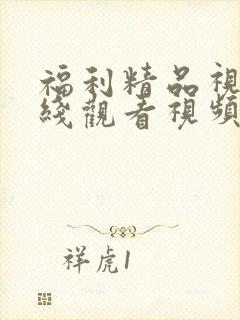 福利精品視
綫觀看視頻
祥虎1